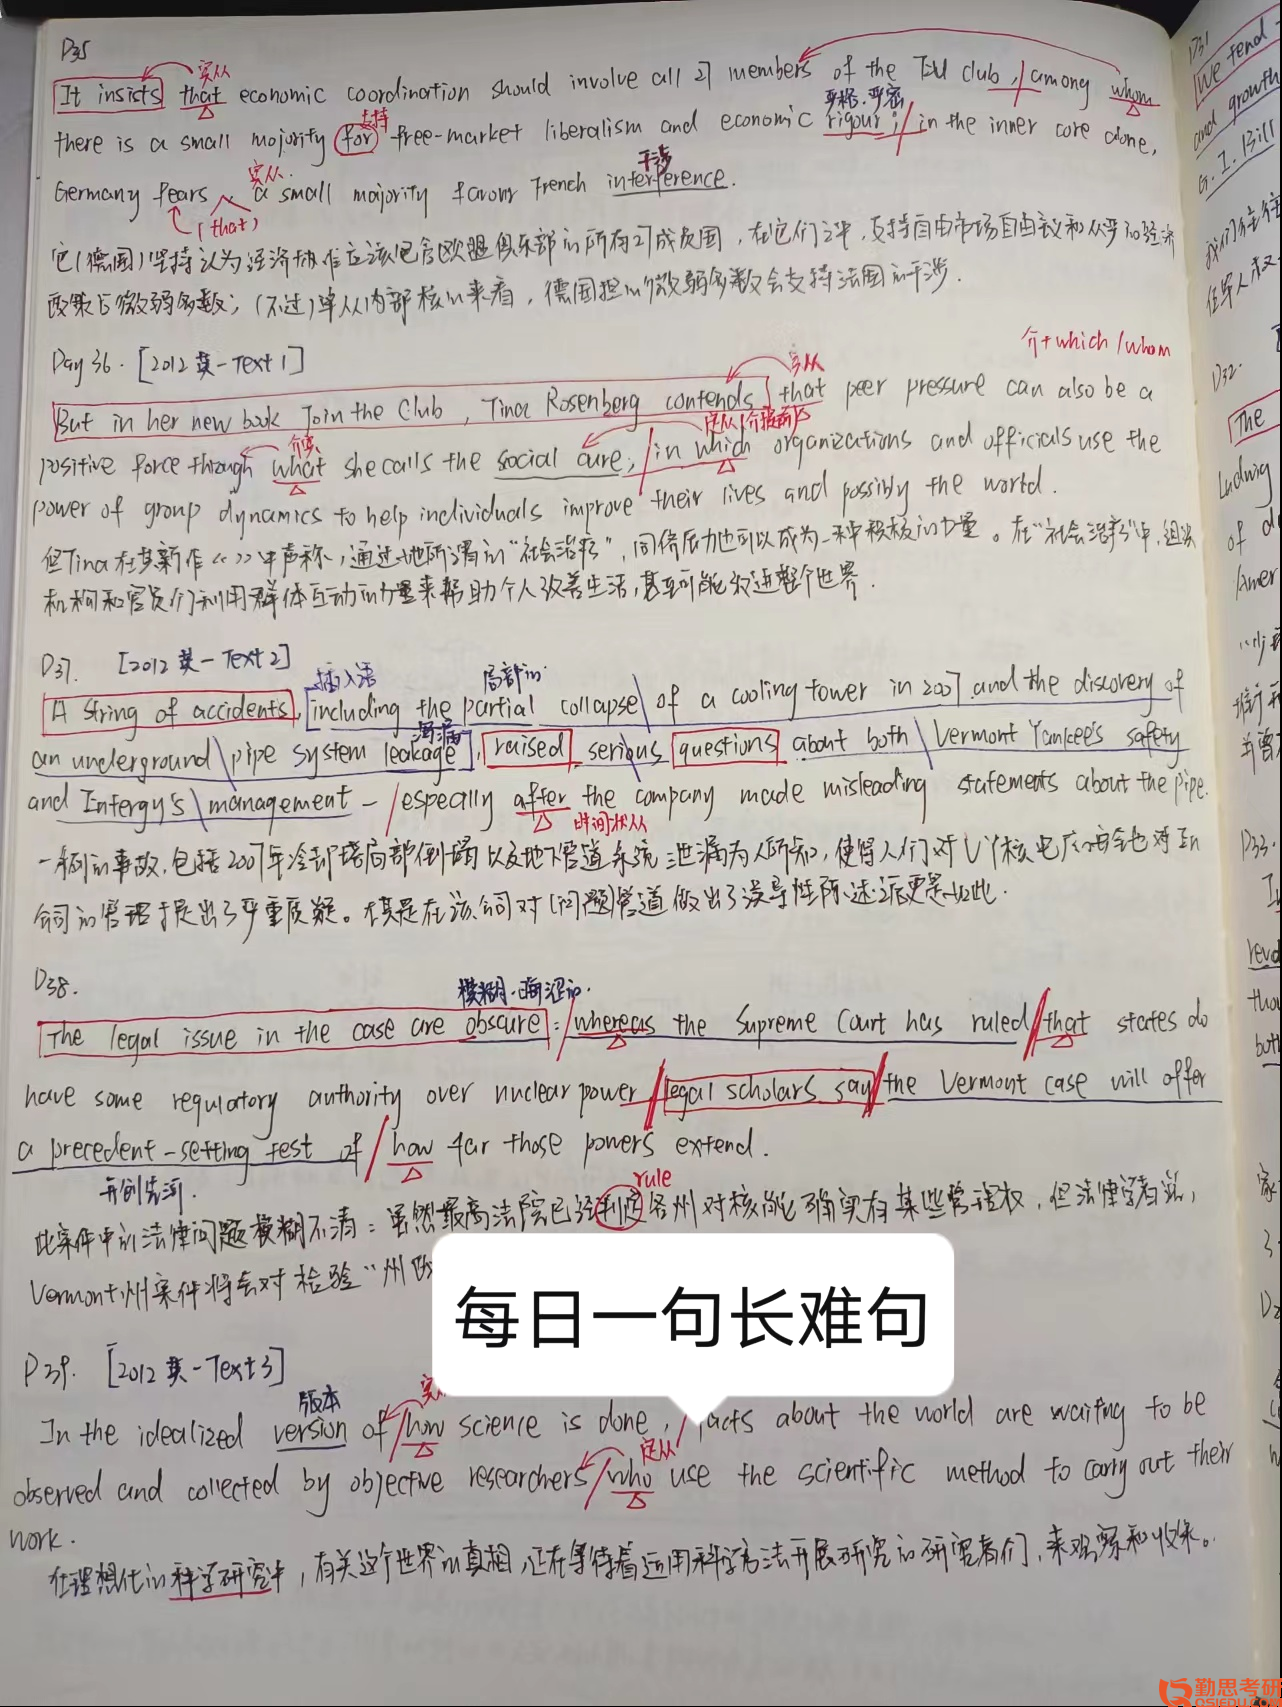 D35
宾从
It insists that economic coordination should involve all 27 members of the EU club, among whom
支持 严格.严密
there is a small majority for free-market liberalism and economic rigour; in the inner core alone,
宾从. 干涉
Germany fears a small majority favour French interference.
(that)
它(德国)坚持认为经济协作应该包含欧盟俱乐部的所有27成员国,在它们之中,支持自由市场自由主义和严的经济
政策占微弱多数;(不过)单从内部核心来看,德国担心微弱多数会支持法国的干涉.
介+which/whom
Day 36. [2012 英一Text1]
宾从
But in her new book Join the Club, Tina Rosenberg contends that peer pressure can also be a
介宾 定从(介提前)
positive force through what she calls the social cure; in which organizations and officials use the
power of group dynamics to help individuals improve their lives and possibly the world.
但Tina在其新作《 》中声称,通过她所谓的"社会治疗",同侪压力也可以成为一种积极的力量。在"社会治疗"中,组织
机构和官员们利用群体互动的力量来帮助个人改善生活,甚至可能改进整个世界.
D37. [2012 英一Text2]
插入语 局部的
A string of accidents, including the partial collapse of a cooling tower in 2007 and the discovery of
泄漏
an underground pipe system leakage, raised serious questions about both Vermont Yankee's safety
and Entergy's management - especially after the company made misleading statements about the pipe.
时间状从
一系列的事故,包括2007年冷却塔局部倒塌以及地下管道系统泄漏为人所知,使得人们对VY核电厂的安全也对En
公司的管理提出了严重质疑。尤其是在该公司对(问题)管道做出了误导性陈述之后更是如此.
D38.
模糊.晦涩的.
The legal issue in the case are obscure: whereas the Supreme Court has ruled that states do
have some regulatory authority over nuclear power legal scholars say the Vermont case will offer
a precedent-setting test of how far those powers extend.
开创先河.
rule
此案件中的法律问题模糊不清:虽然最高法院已经判定各州对核能确实有某些管理权,但法律学者说,
Vermont州案件将会对检验"州政
每日一句长难句
D39. [2012 英一Text3]
版本
In the idealized version of how science is done, facts about the world are waiting to be
定从
observed and collected by objective researchers who use the scientific method to carry out their
work.
在理想化的科学研究中,有关这个世界的真相,正在等待着运用科学方法开展研究的研究者们,来观察和收集。
D31
We tend
and growth
G. I. Bill
D32.
The
Ludwig
of d
Amer
D33.
revo
thou
both
勤思考研